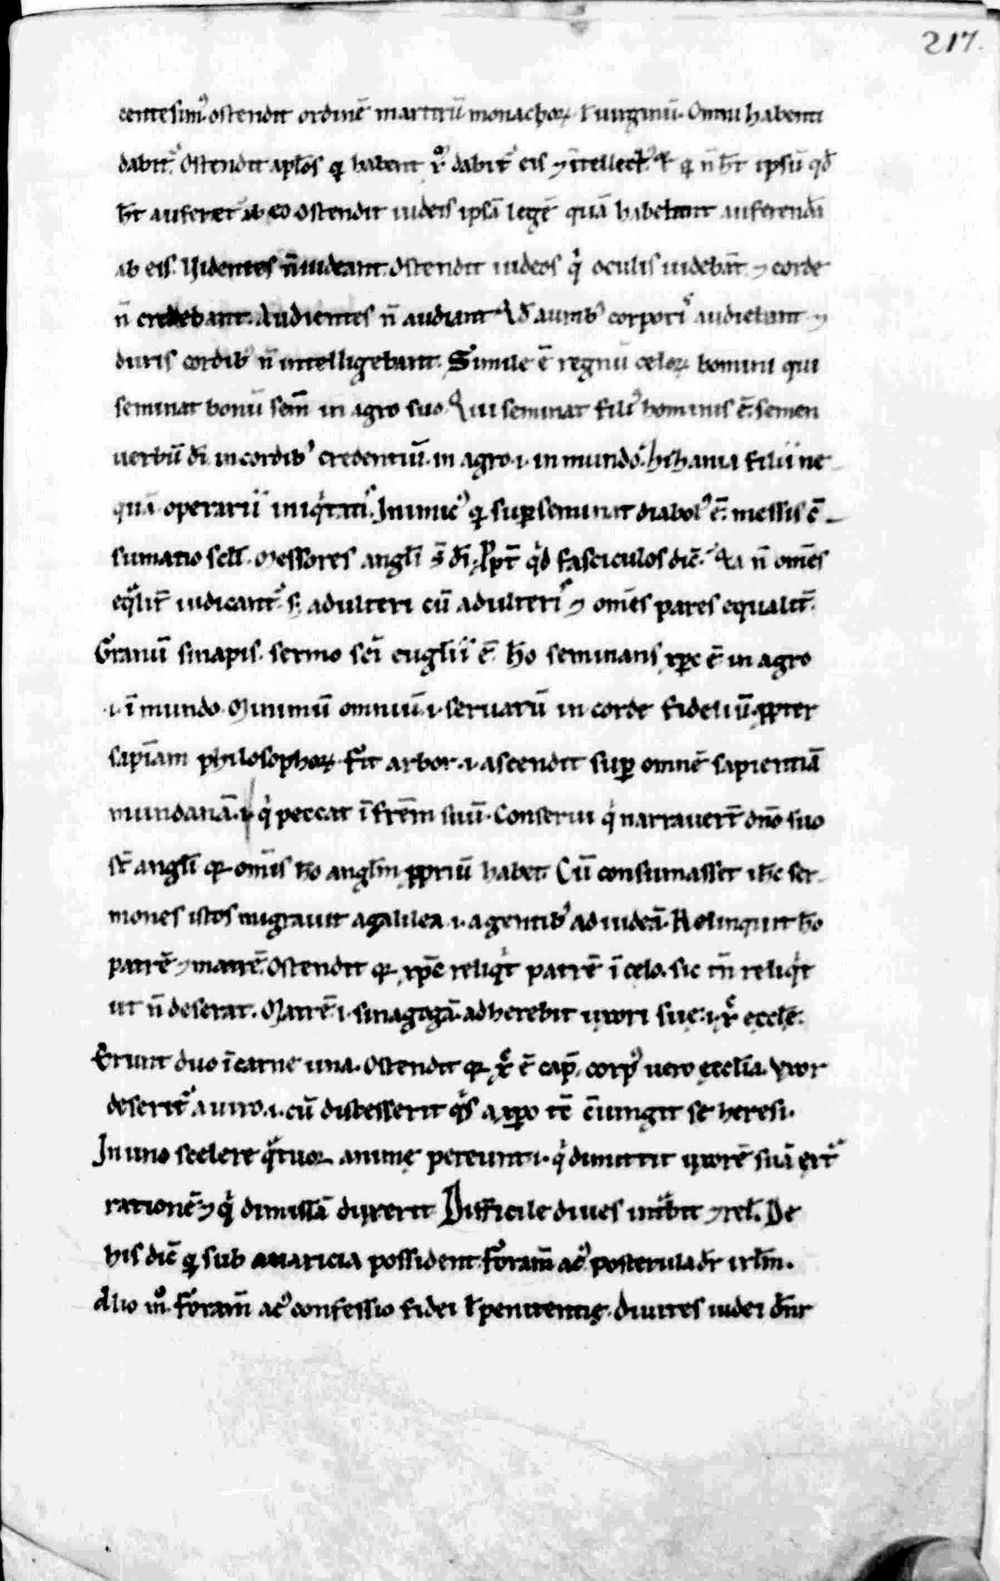 217.
centesim᷒ ostendit ordinē martirū monachoꝝ ł uirginū. Omni habenti
dabit᷑. Ostendit aplōs qi habent dabit᷑ eis ⁊ ītellect᷒ qi n̄ hr̄ ipsū qd̄
hr̄ auferet᷑ ab eo ostendit iudeis ipsā legē quā habebant auferendā
ab eis. Uidentes n̄ uideant. Ostendit iudeos qͥ oculis uidebāt ⁊ corde
n̄ credebant. Audientes n̄ audiant aurib᷒ corporis audiebant ⁊
duris cordib᷒ n̄ intelligebant. Simile ē regnū celoꝝ homini qui
seminat bonū sem̄ in agro suo. Qui seminat fili᷒ hominis ē. semen
uerbū dī in cordib᷒ credentiū. in agro .i. in mundo. zizania filii ne
quā operarii iniqͥtatis. Inimic᷒ qi suꝑseminat diabol᷒ ē. messis cō
sumatio sclī. Messores angli s̄ dī. qd̄ fasciculos dic̄. n̄ om̄s
eqͣlit᷑ iudicant᷑ s; adulteri cū adulteris ⁊ om̄s pares equalit᷑.
Granū sinapis. sermo scī euglii ē. hō seminans xp̄c ē in agro
.i. ī mundo. Minimū omniū .i. seruatū in corde fideliū. ꝓpter
sapīam philosophoꝝ. fit arbor .i. ascendit suꝑ omnē sapientiā
mundanā. qͥ peccat ī frēm suū. Conserui qͥ narrauer̄t dn̄o suo
st̄ angli qꝛ om̄is hō anglm̄ ꝓpriū habet. Cū consumasset ih̄c ser
mones istos migrauit a galilea .i. a gentib᷒ ad iudeā. Relinquit hō
patrē ⁊ matrē. Ostendit qꝛ xp̄c reliqͥt patrē ī celo. sic tn̄ reliqͥt
ut n̄ deserat. Matrē .i. sinagogā. adherebit uxori suę .i. ecclē.
Erunt duo ī carne una. Ostendit qꝛ ē cap̄. corp᷒ uero ęcclīa. Uxor
deserit᷑ a uiro .i. cū discesserit qͥs a xp̄o tc̄ cōiungit se heresi.
In uno scelere qͣtuor animę pereunt .i. qͥ dimittit uxorē suā
rationē ⁊ qͥ dimissā duxerit. Difficile diues intͣbit ⁊ rel. De
his dic̄ qi sub auaricia possident. foram̄ ac᷒ posterula dr̄ irlm̄.
Alio mͦ. foram̄ ac᷒ confessio fidei ł penitentię. diuites iudei dn̄r